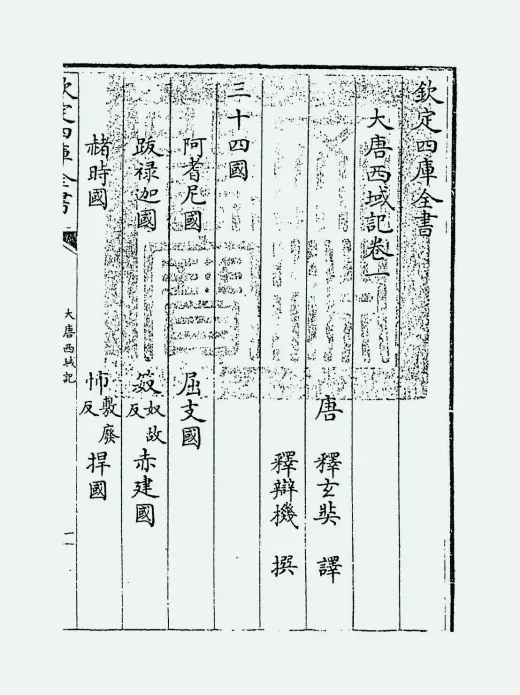 欽定四庫全書
大唐西域記卷一
唐 釋玄奘 譯
釋辯機 撰
三十四國
阿耆尼國 屈支國
跋禄迦國 笯奴故反赤建國
赭時國 㤄敷廢反捍國
欽定四庫全書
大唐西域記
一